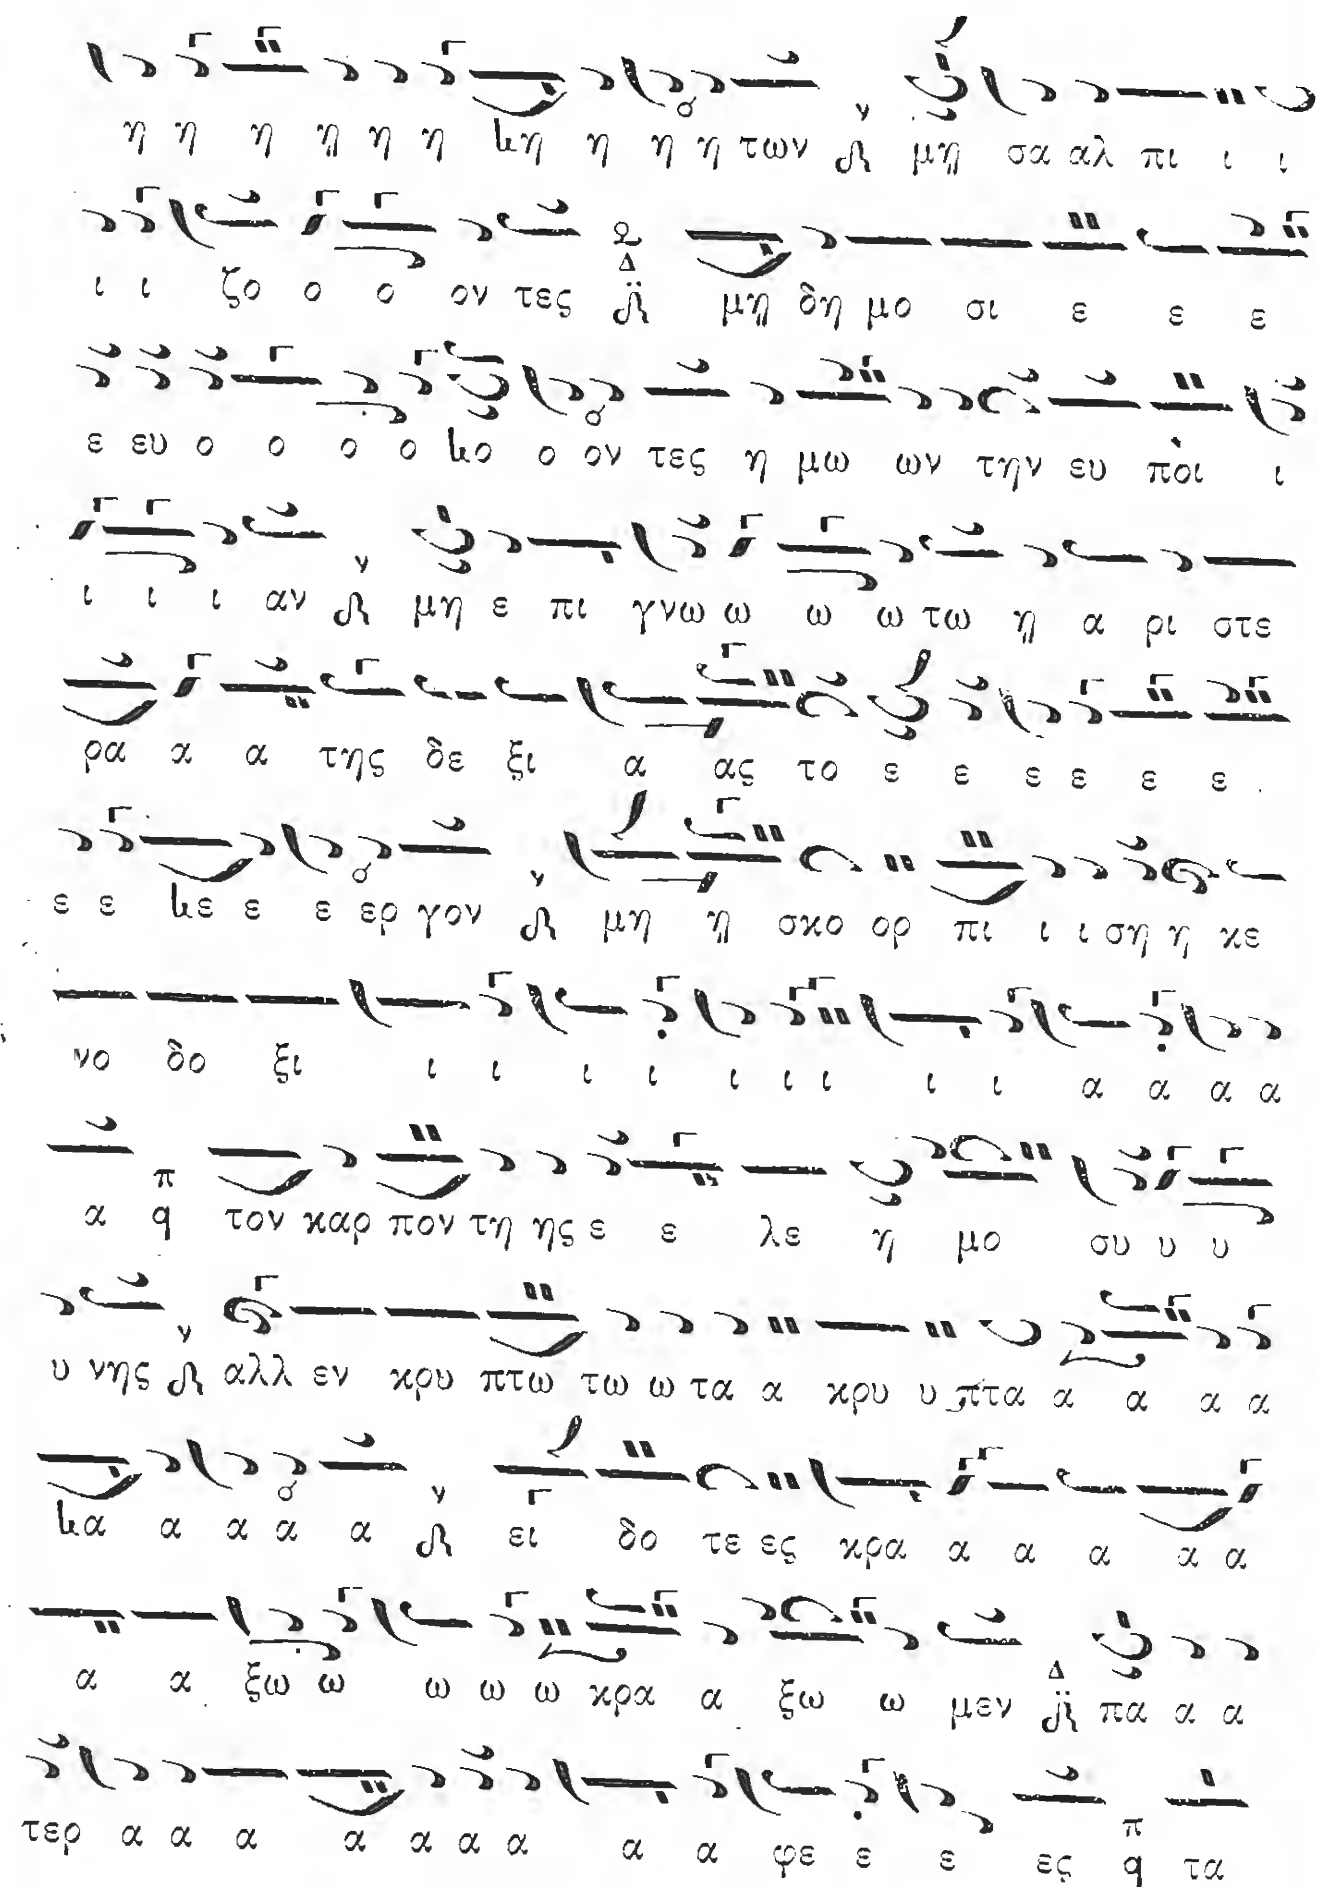 η η η η η η κη η η η των μη σα αλ πι ι ι
ι ι ζο ο ο ον τες Δ μη δη μο σι ε ε ε
ε ευ ο ο ο ο κο ο ον τες η μω ων την ευ ποι ι
ι ι ι αν μη ε πι γνω ω ω ω τω η α ρι στε
ρα α α της δε ξι α ας το ε ε ε ε ε ε
ε ε κε ε ε ερ γον μη η σκο ορ πι ι ι ση η κε
νο δο ξι ι ι ι ι ι ι ι ι ι α α α α
α π q τον καρ πον τη ης ε ε λε η μο συ υ υ
υ νης αλλ εν κρυ πτω τω ω τα α κρυ υ πτα α α α α
κα α α α α ει δο τε ες κρα α α α α α
α α ξω ω ω ω ω κρα α ξω ω μεν Δ πα α α
τερ α α α α α α α α α φε ε ε ες π q τα